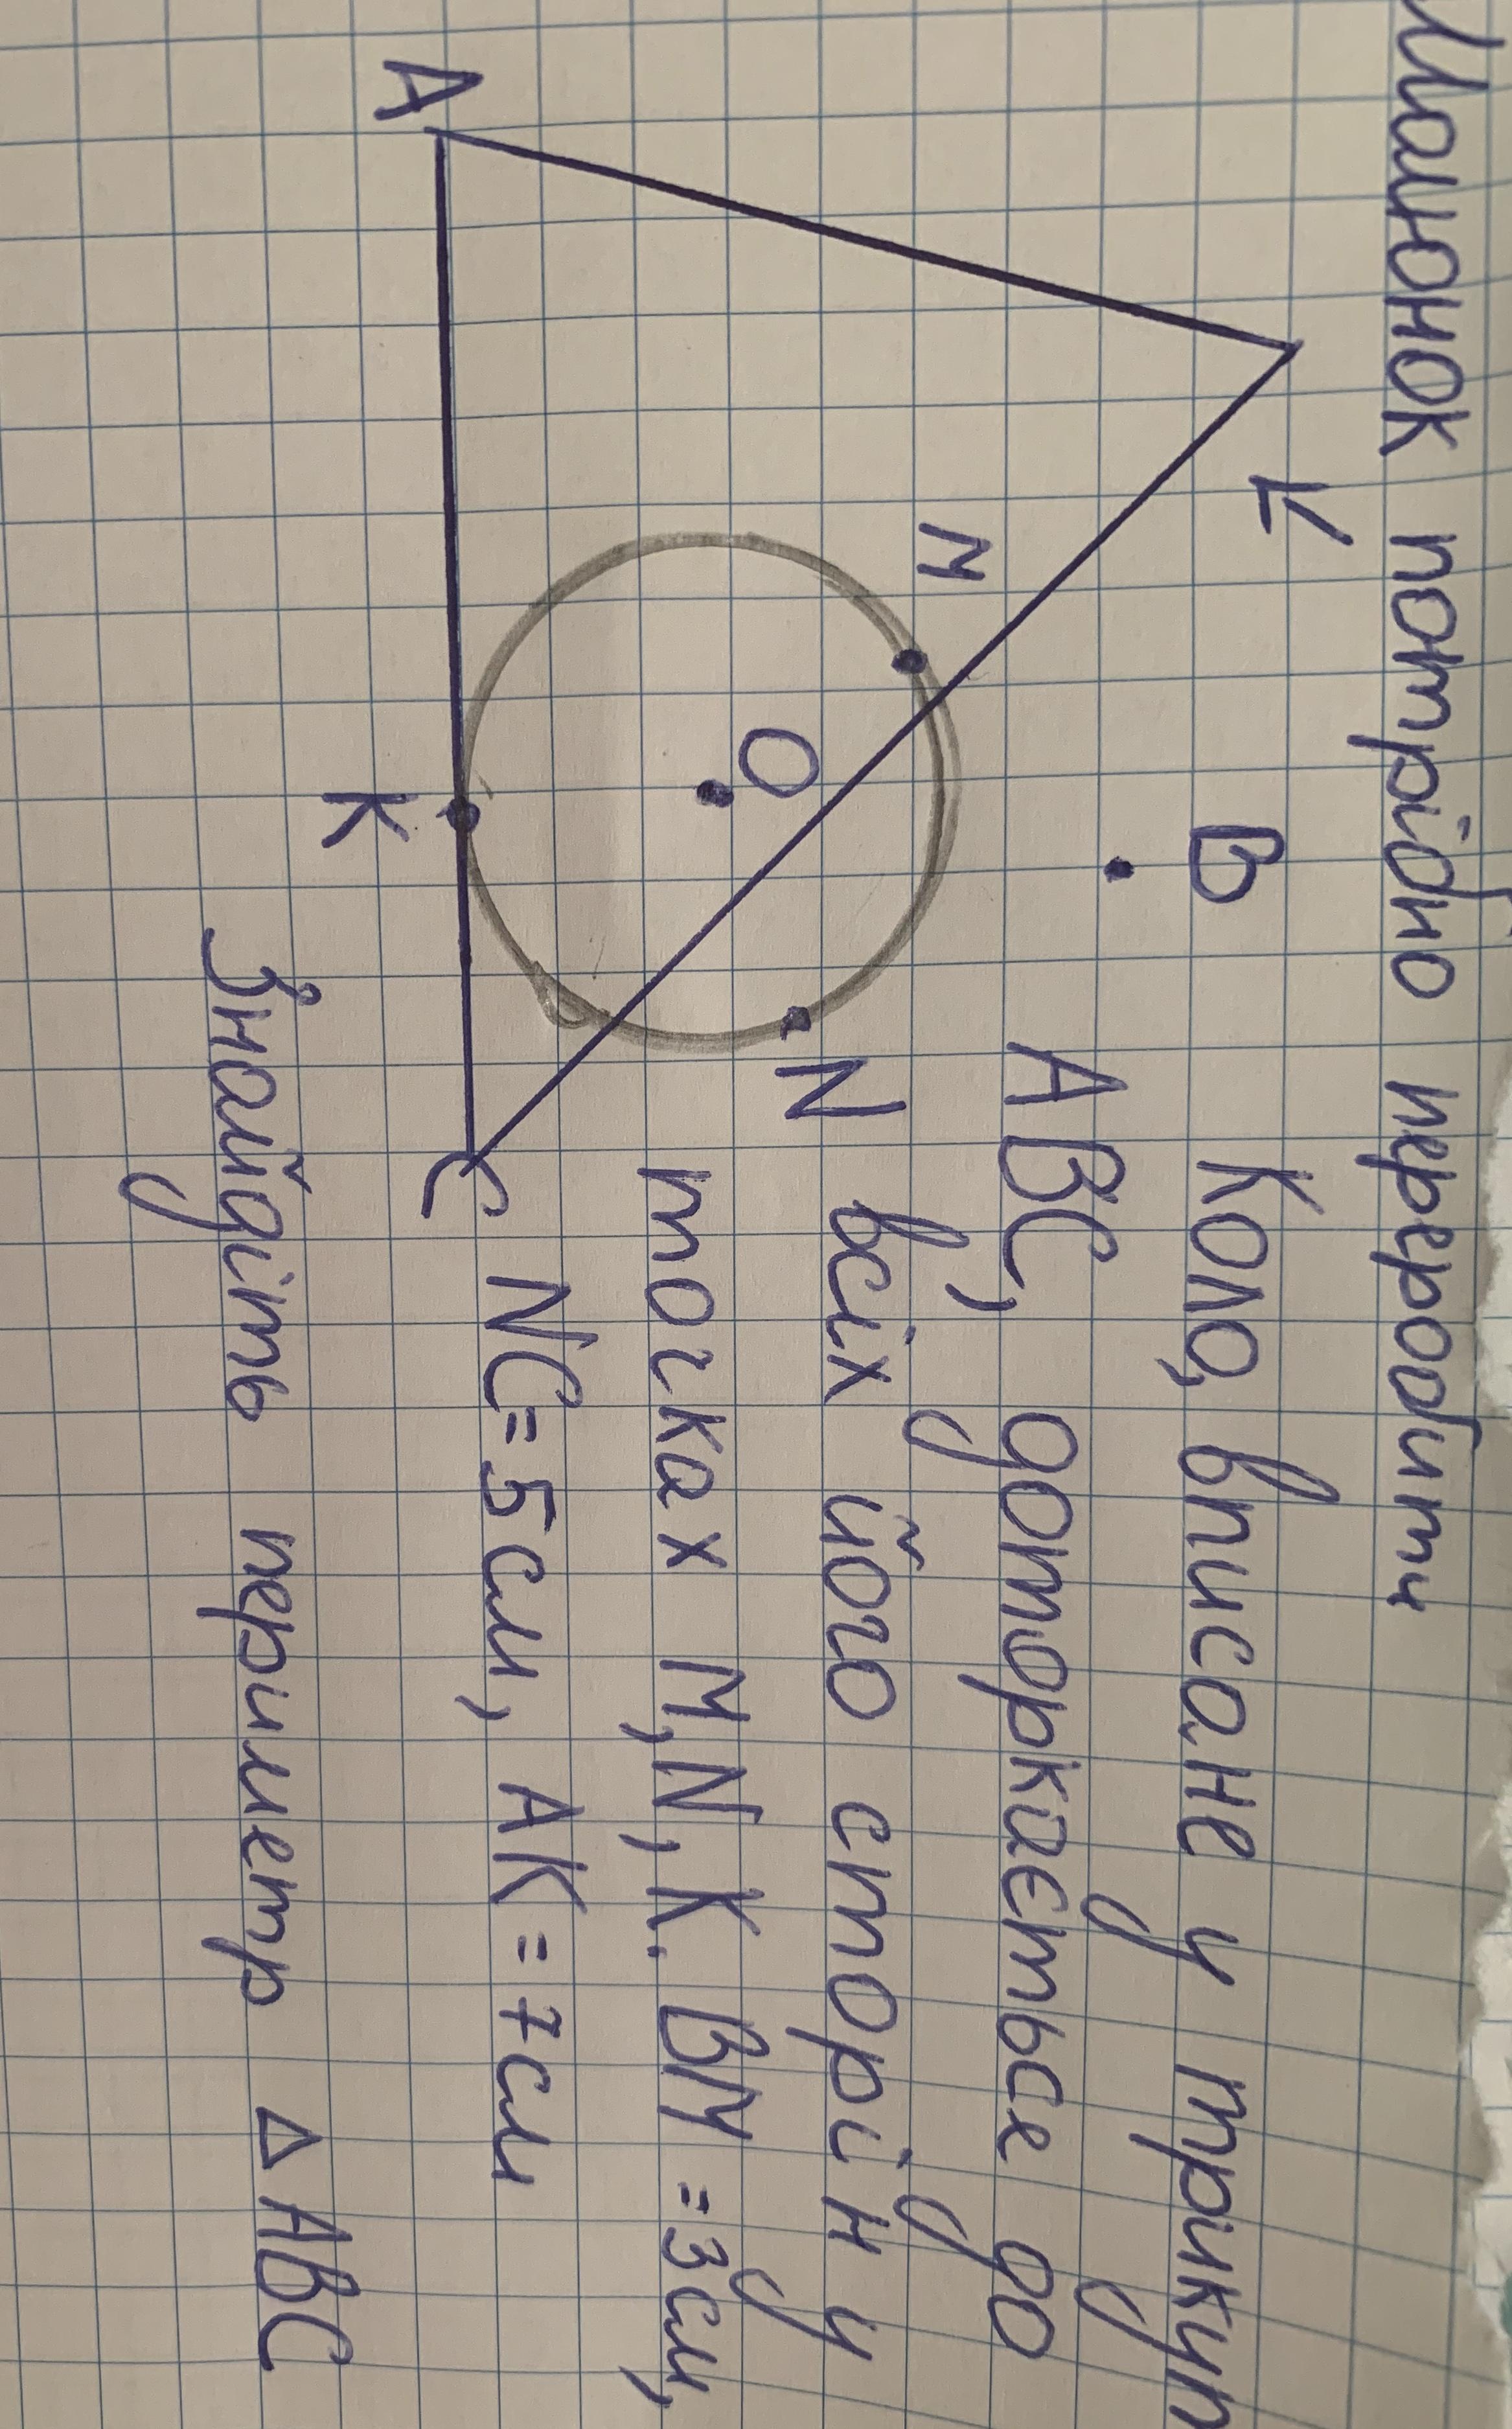 Малюнок потрібно переробити
L
B
Коло, вписане у трикут
A
M
O
N
K
C
ABC, доторкаєтьсе до
всіх його сторін у
точках M, N, K. BM = 3см,
NC = 5см, AK = 7см
Знайдіть периметр Δ ABC